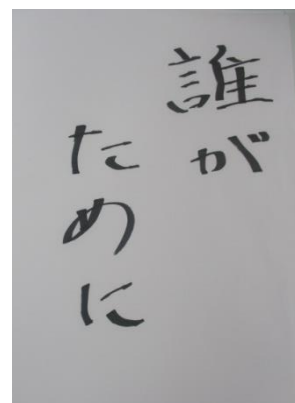 誰が
ために